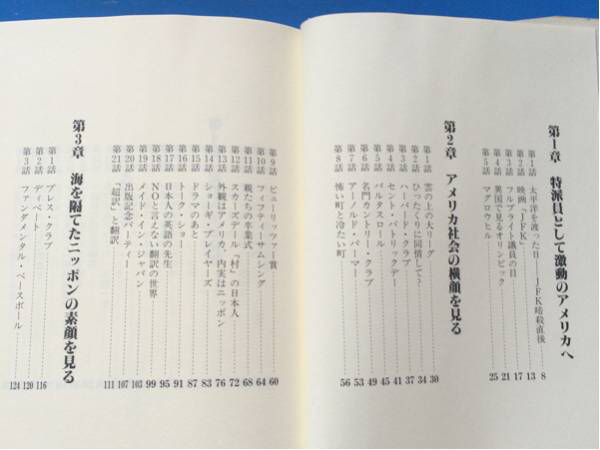 第1章 特派員として激動のアメリカへ
第1話 太平洋を渡った日――JFK暗殺直後……8
第2話 映画「JFK」……13
第3話 フルブライト議員の目……17
第4話 異国で見るオリンピック……21
第5話 マグロウヒル……25
第2章 アメリカ社会の横顔を見る
第1話 雲の上の大リーグ……30
第2話 ひったくりに同情して?……34
第3話 ハーバード・クラブ……37
第4話 セント・パトリックデー……41
第5話 バルタスロール……45
第6話 名門カントリー・クラブ……49
第7話 アーノルド・パーマー……53
第8話 怖い町と冷たい町……56
第9話 ピューリッツァー賞……60
第10話 フィフティーサムシング……64
第11話 親たちの卒業式……68
第12話 スカーズデール「村」の日本人……72
第13話 外観はアメリカ、内実はニッポン……76
第14話 シャーギ・プレイヤーズ……83
第15話 ドラマのあと……87
第16話 トークショウ……91
第17話 日本人の英語の先生……95
第18話 NOと言えない翻訳の世界……99
第19話 メイド・イン・ジャパン……103
第20話 出版記念パーティー……107
第21話 「超訳」と翻訳……111
第3章 海を隔てたニッポンの素顔を見る
第1話 プレス・クラブ……116
第2話 ディベート……120
第3話 ファンダメンタル・ベースボール……124